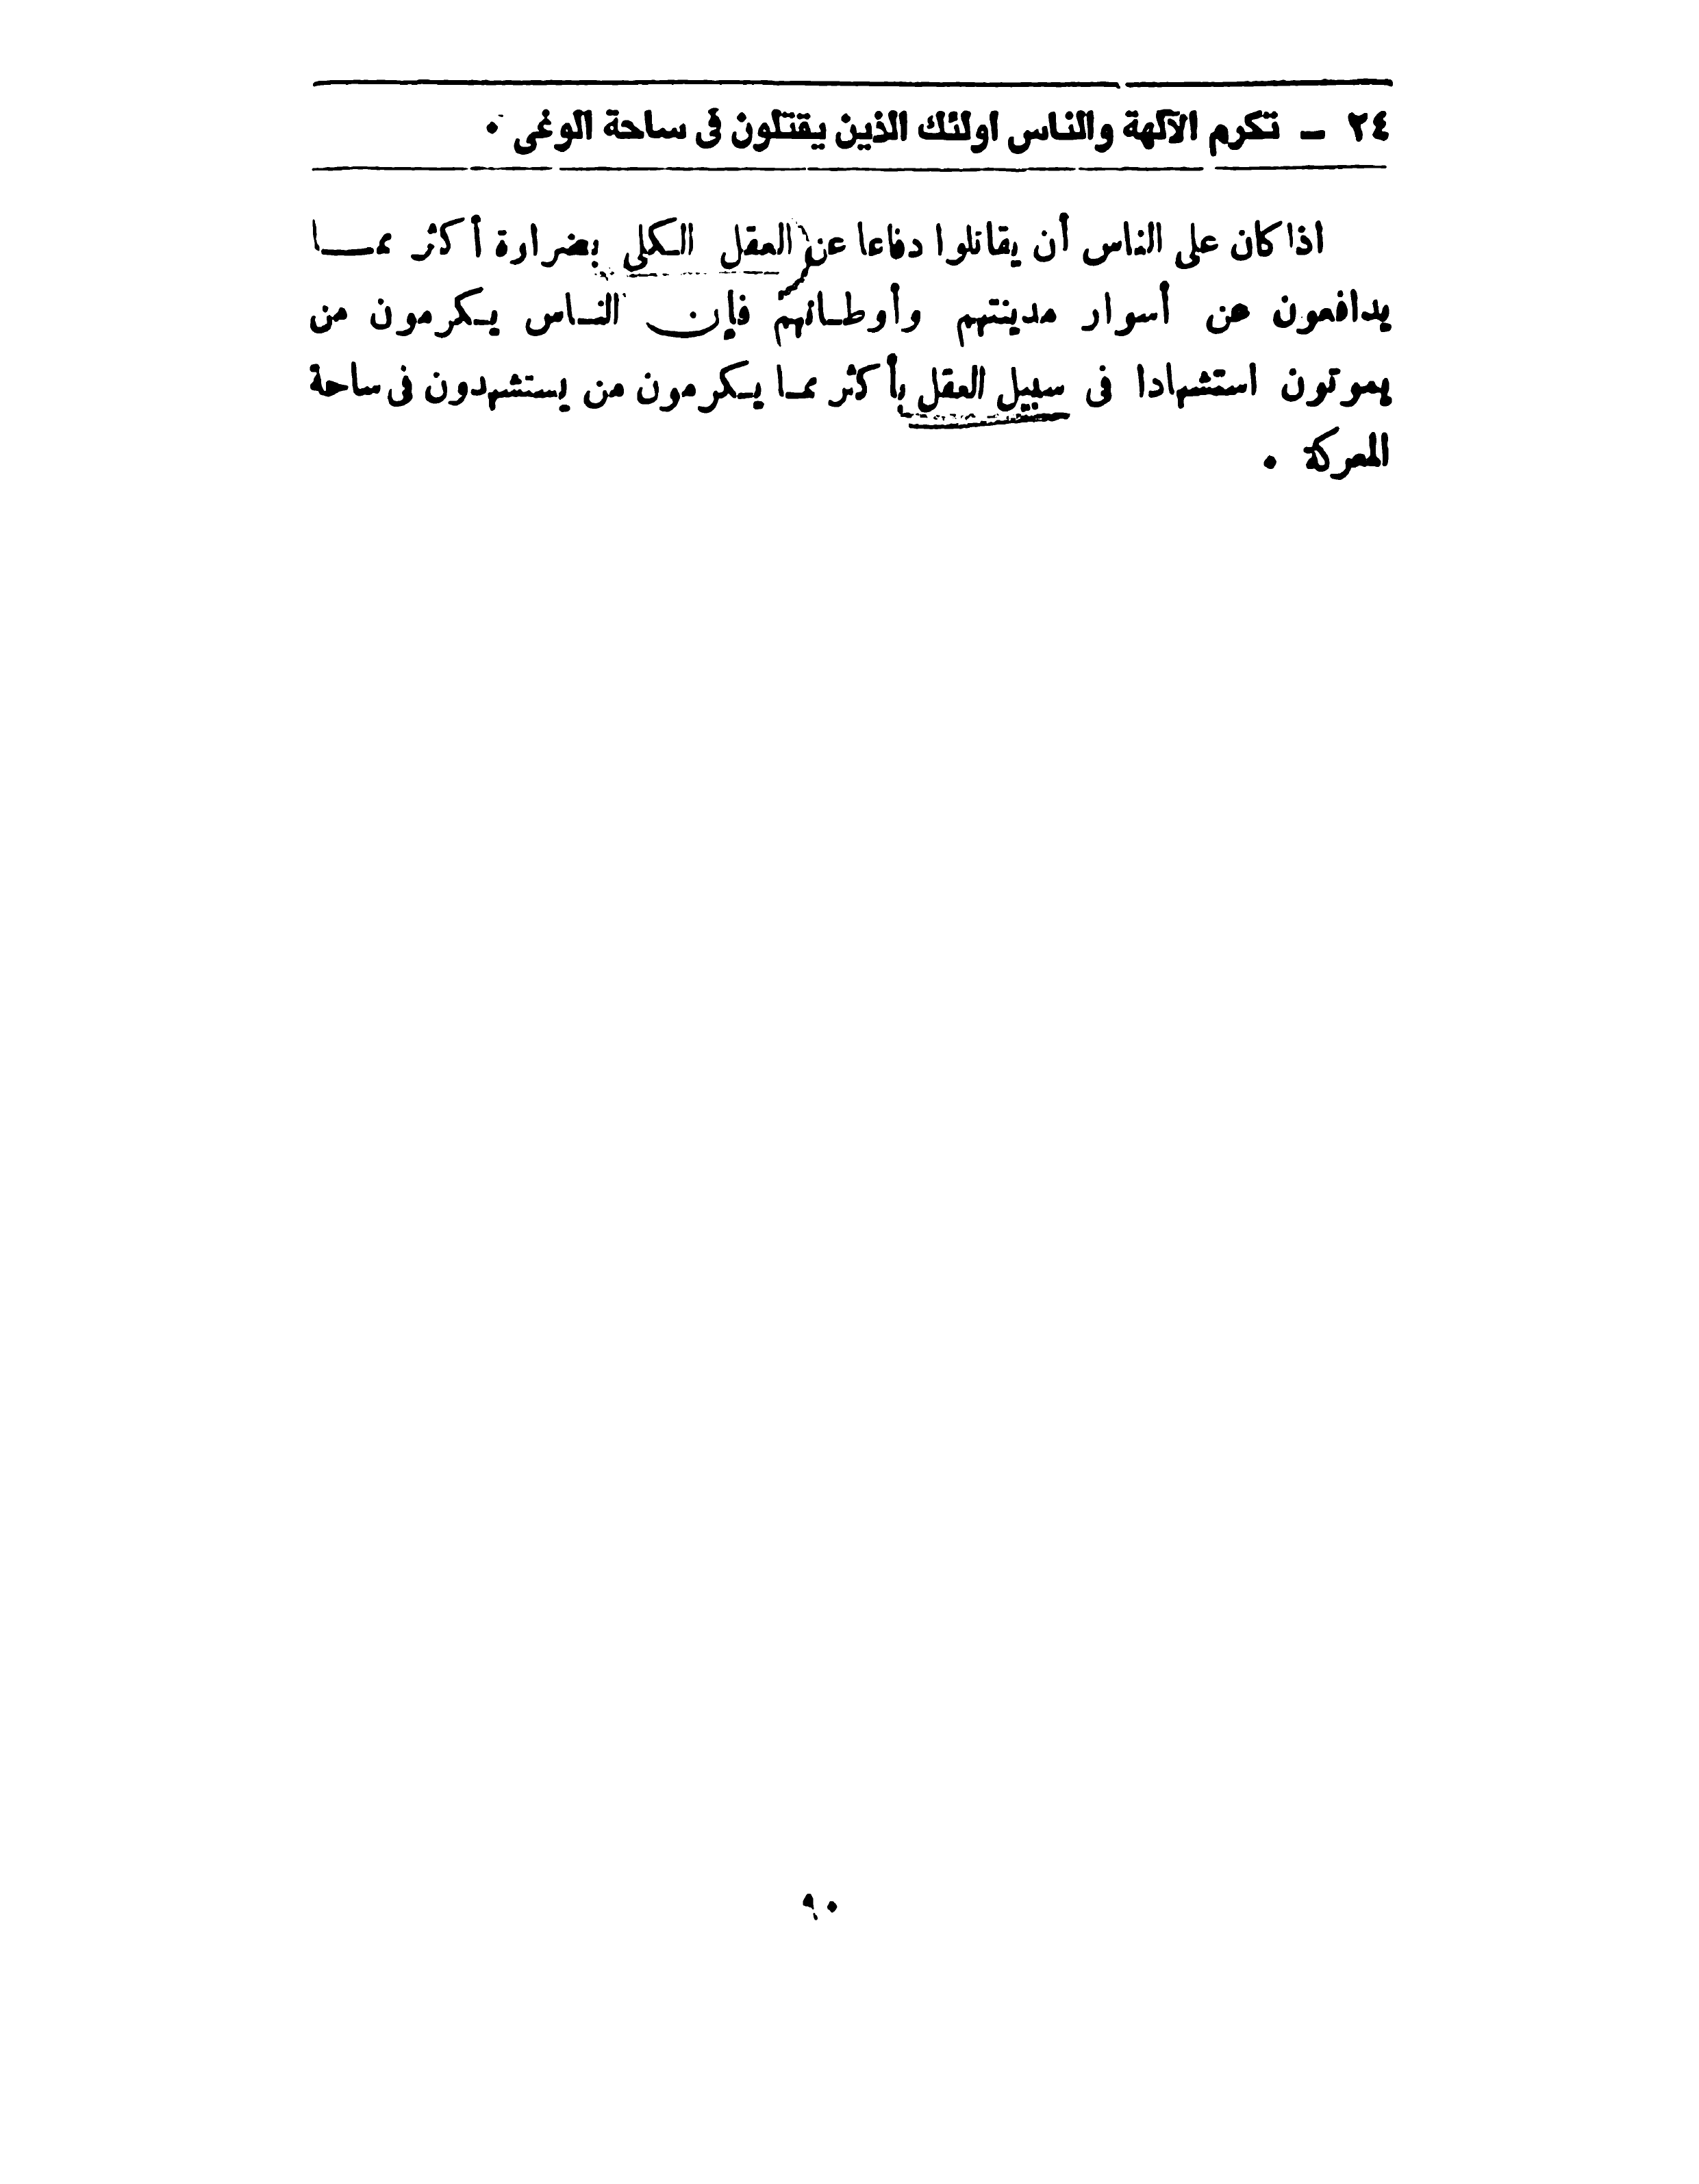 ٢٤ – تكرم الآلهة والناس اولئك الذين يقتلون فى ساحة الوغى .
اذا كان على الناس أن يقاتلوا دفاعا عن العقل الكلى بضرارة أكثر مما
يدافعون عن أسوار مدينتهم وأوطانهم فإن الناس يكرمون من
يموتون استشهادا فى سبيل العقل بأكثر مما يكرمون من يستشهدون فى ساحة
المعركة .
٩٠